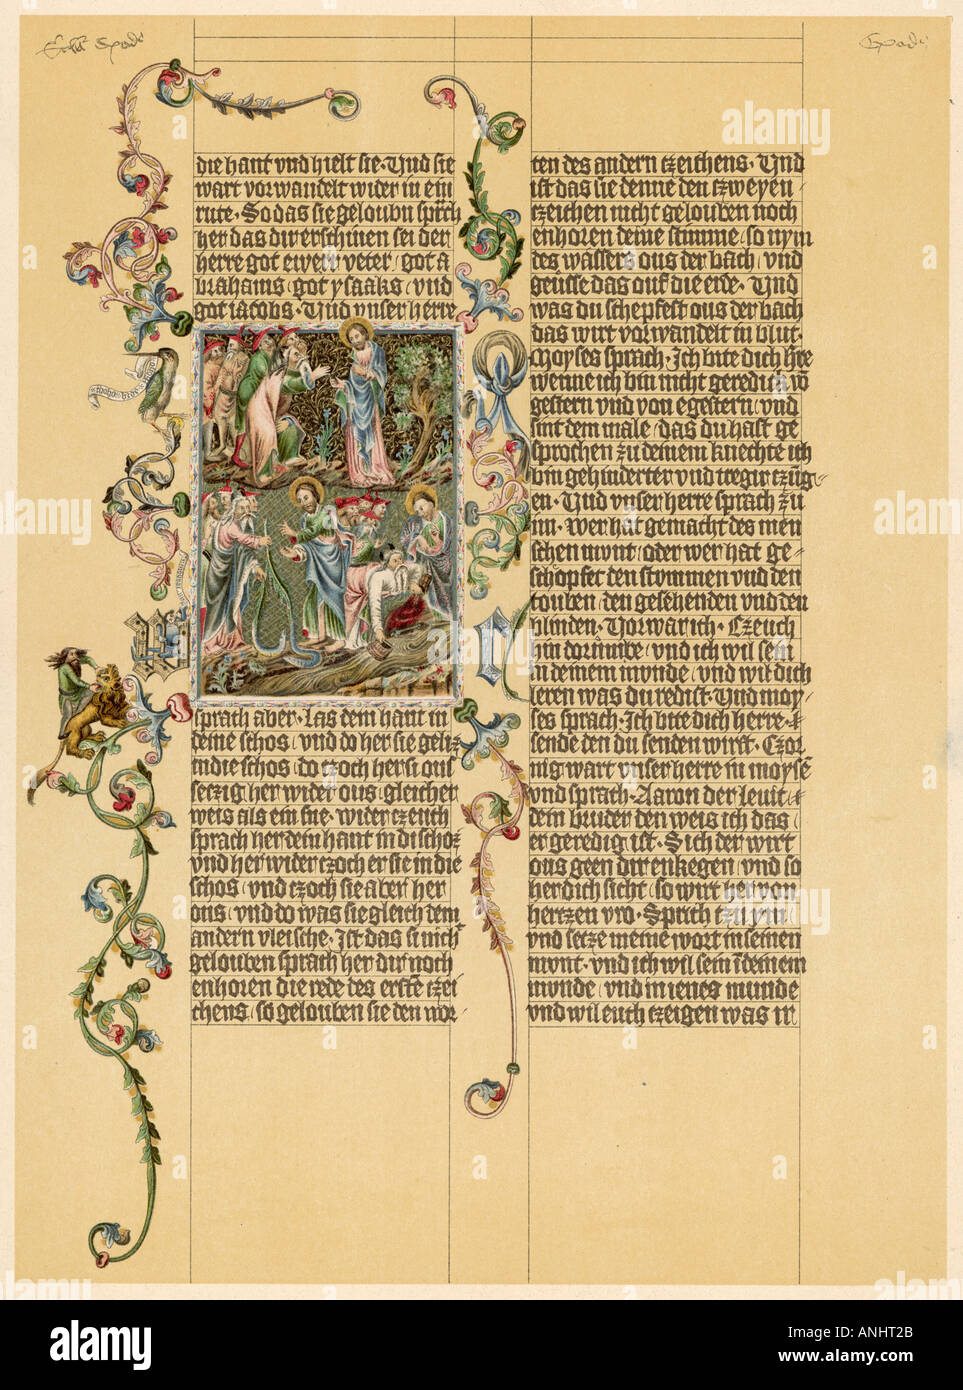 die hant vnd hielt sie. Vnd sie
wart vorwandelt wider in ein
rute. So das sie geloubn sprich
her das dir erschinen sei der
herre got ewerr veter / got a
brahams / got ysaaks / vnd
got iacobs. Vnd vnser herre
sprach aber. Las dein hant in
deine schos / vnd do her sie
in die schos / do czoch her si ous
setzig her wider ous / gleicher
weis als ein sne. wider czeuch
sprach her dein hant in di schoz
vnd her wider czoch er sie in die
schos / vnd czoch sie aber her
ous / vnd do was sie gleich dem
andern vleische. Ist das si nicht
gelouben sprach her dir noch
enhoren die rede des erste czei
chens / so gelouben sie den wor
ten des andern czeichens. Vnd
ist das sie denne den czweyen
czeichen nicht gelouben noch
enhoren deine stimme / so nym
des wassers ous der bach / vnd
geusse das ouf die erde. Vnd
was du schepfest ous der bach
das wirt vorwandelt in blut.
Moyses sprach. Ich bite dich hre
wenne ich bin nicht geredich
gestern vnd von egestern / vnd
sint dem male / das du hast ge
sprochen zu deinem knechte ich
bin gehinderter vnd tregir
en. Vnd vnser herre sprach zu
im. Wer hat gemacht des men
schen mont / oder wer hat ge
schopfet den stymmen vnd den
touben / den gesehenden vnd den
blinden. Vorwar ich. Czeuch
hin dorumbe / vnd ich wil sein
in deinem munde / vnd wil dich
leren was du redist. Vnd moy
ses sprach. Ich bite dich herre.
sende den du senden wirst. Czor
nig wart vnser herre in moyse
vnd sprach. Aaron der leuit
dein bruder den weis ich das
er geredig ist. Sich der wirt
ous geen dir enkegen / vnd so
her dich sicht / so wirt her von
hertzen vro. Sprich czu ym
vnd setze meine wort in seinen
mont. vnd ich wil sein i deinem
munde / vnd in ienes munde
vnd wil euch czeigen was ir
alamy
Image ID: ANHT2B
www.alamy.com